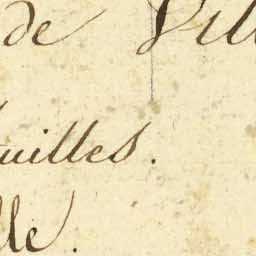 de Vill
uilles.
lle.